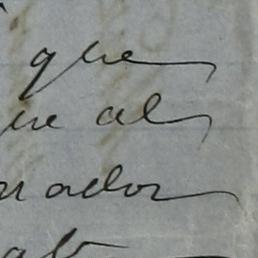 que
ue al
nador